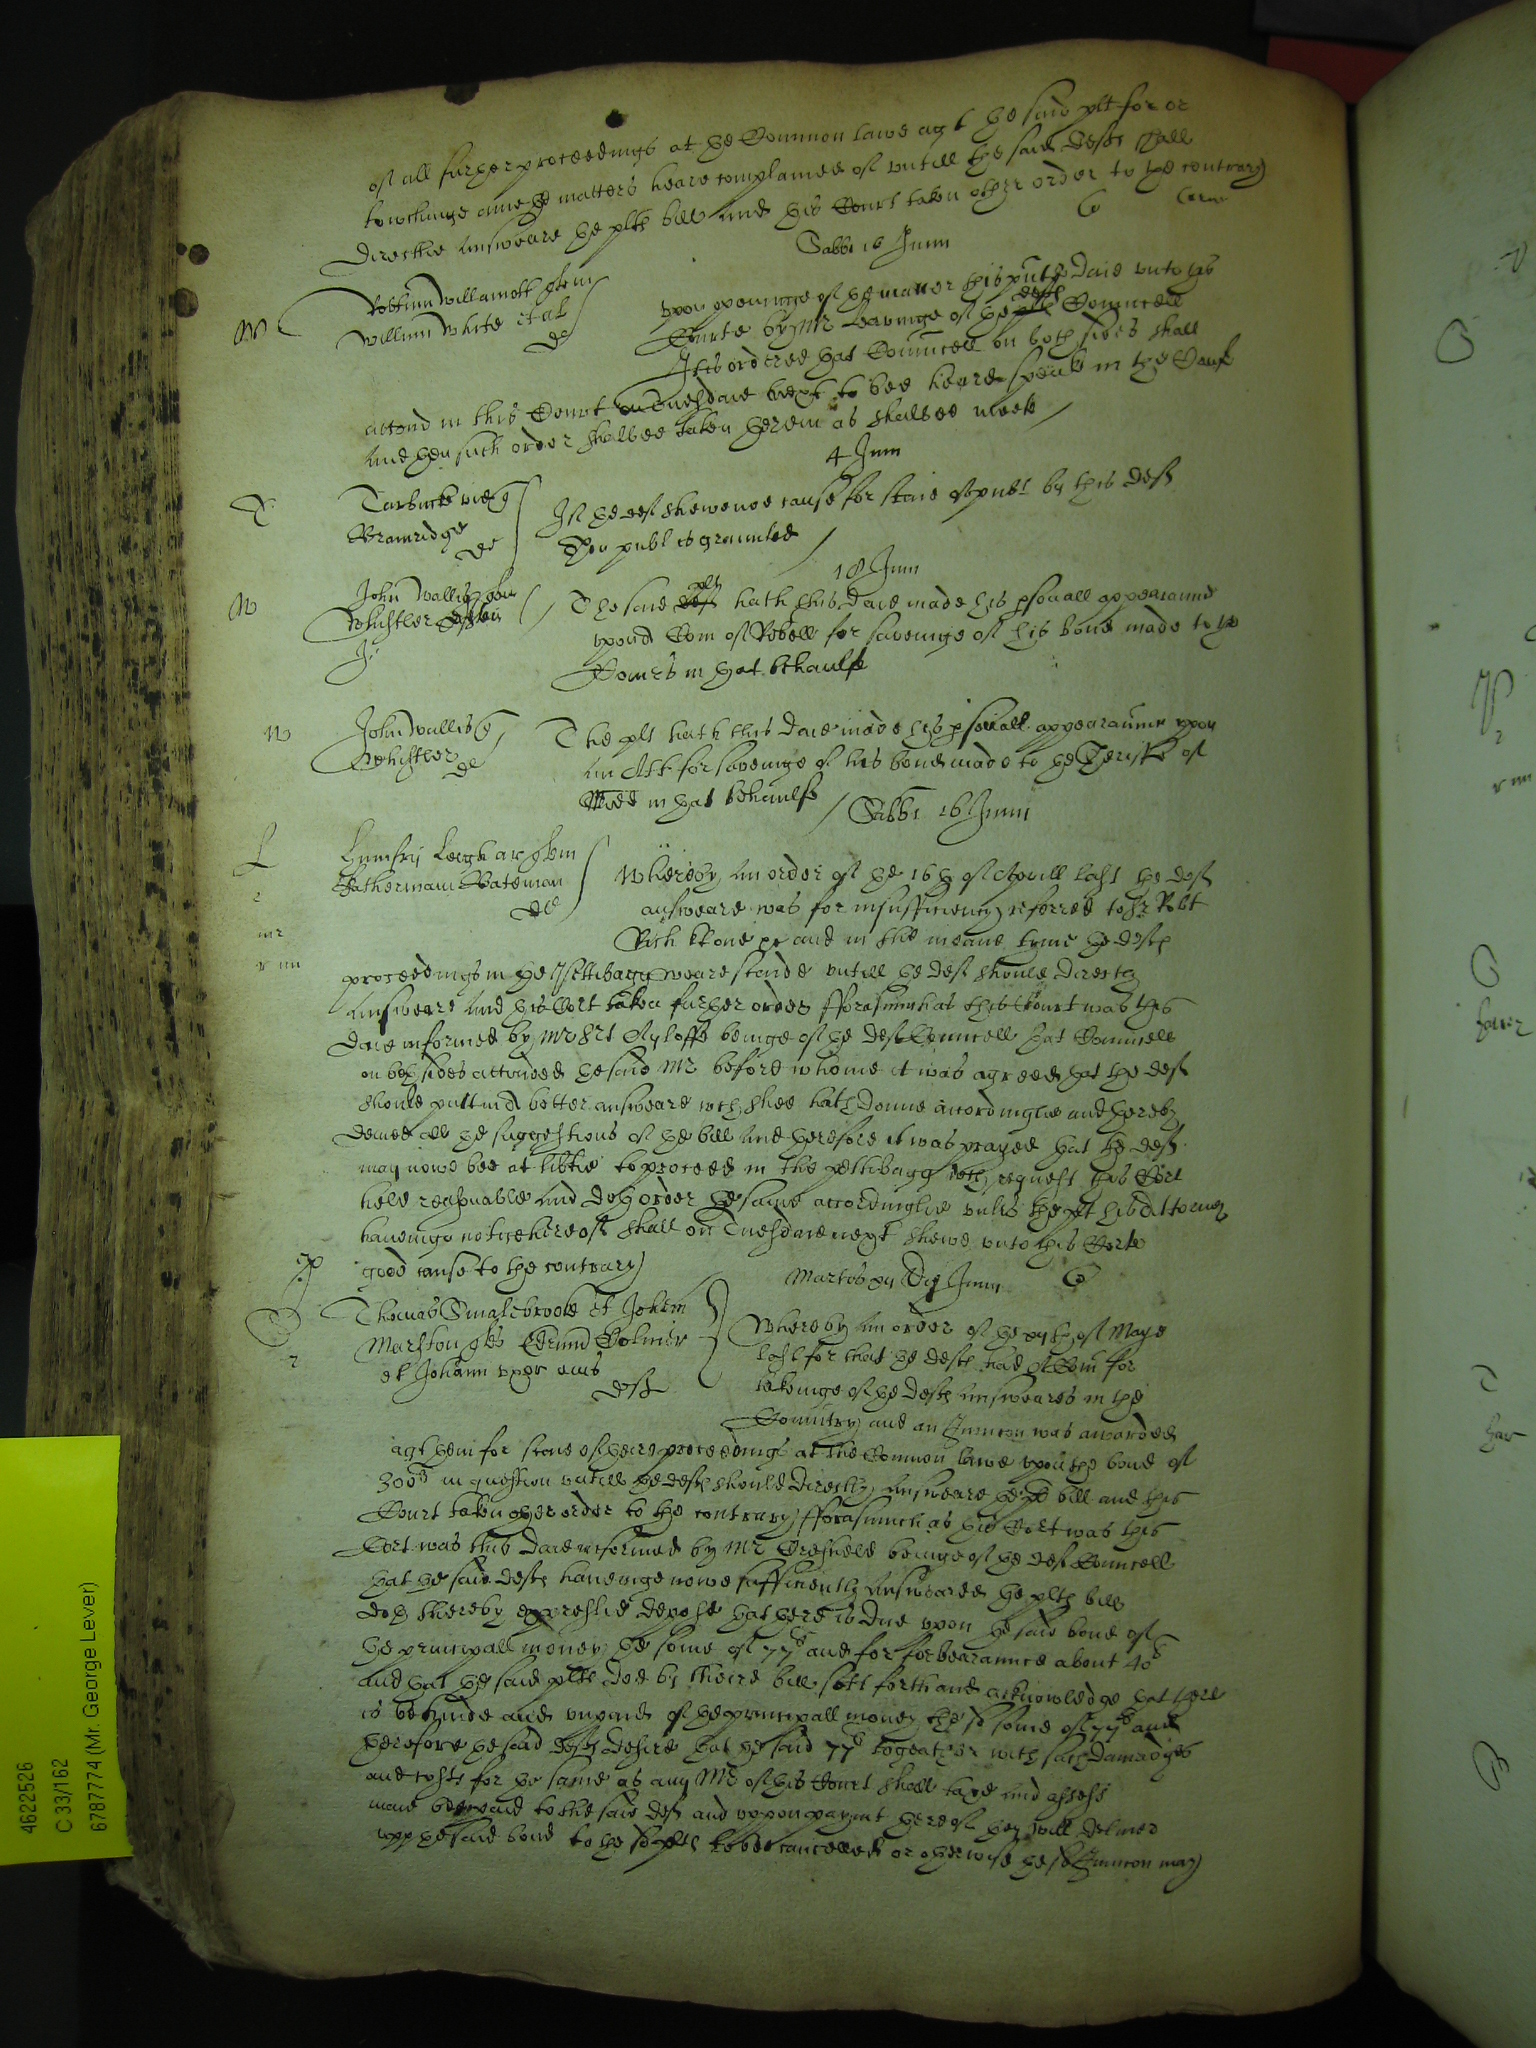 of all further proceedings at the Common lawe agt the said plt for or
towchinge anie the matters heare complained of untill the said defts shall
directlie answeare the plts bill and this Court taken other order to the contrary
Sabbi 16 Junii
M
William White et al
de
upon openinge of the matter this pnte daie unto this
Courte by Mr beinge of the plts defts Councell
It is ordered that Councell on both sides shall
attend in this Court on Tuesdaie next to bee heard speake in the Cause
and then such order shalbee taken therein as shalbee meete
4 Junii
T
Bramridge
de
If the deft shewe noe cause for staie of publ by this deft
then publ is graunted
18 Junii
W
John Wallis
Whistler
The said deft plt hath this daie made his psonall appearaunce
upon a Com of Rebell for saveinge of his bond made to the
Comrs in that behaulfe
W
John Wallis
Whistler
de
The plt hath this daie made his psonall appearaunce upon
an Att for saveinge of his bond made to the Sheriffe of
in that behaulfe
Sabbi 16 Junii
L
2
mr
r nn
Humfry Leigh ar
Katherinam Bateman
de
Whereby an order of the 16th of Aprill last the deft
answeare was for insufficiency referred to Sr Robt
Rich kt one &c and in the meane tyme the defts
proceedings in the pettibagg weare staid untill the deft should directly
answeare and this Cort taken further order fforasmuch as this Court was this
daie informed by Mr Srt Ayloffe beinge of the defts Councell that Councell
on both sides attended the said Mr before whome it was agreed that the deft
should putt in a better answeare wch shee hath donne accordinglie and thereby
denied all the suggestions of the bill and therefore it was prayed that the deft
may nowe bee at libtie to proceed in the pettibagg wch request this Cort
held reasonable and doth order the same accordinglie unles the plt his Attorney
haveinge notice hereof shall on Tuesdaie next shewe unto this Corte
good cause to the contrary
Martis Junii
2
Thomas Smalebrooke et Johem
Marston Edmund Colmer
et Johann
deft
Whereby an order of the of Maye
last for that the defts had a Com for
takeinge of the defts answeares in the
Countrey and an Iniunccon was awarded
agt them for staie of their proceedings at the Common lawe upon the bond of
300li in question untill the defts should directly answeare the plts bill and this
Court taken other order to the contrary fforasmuch as this Cort was this
Cort was this daie informed by Mr Creswell beinge of the defts Councell
that the said defts haveinge nowe sufficiently answeared the plts bill
doth thereby expreslie depose that there is due upon the said bond of
the principall money the some of 77li and for forbearaunce about 40s
and that the said plts doe by theire bill sett forth and acknowledge that there
is behinde and unpaid of the principall money the sd some of 77li and
therefore the said defts desire that the said 77li togeather with such damadges
and costs for the same as any Mr of this Court shall taxe and assesse
maie bee paid to the said deft and uppon paymt thereof they will deliver
upp the said bond to the sd plts to bee cancelled or otherwise the sd Iniunccon may
4622526
C 33/162
6787774 (Mr. George Lever)